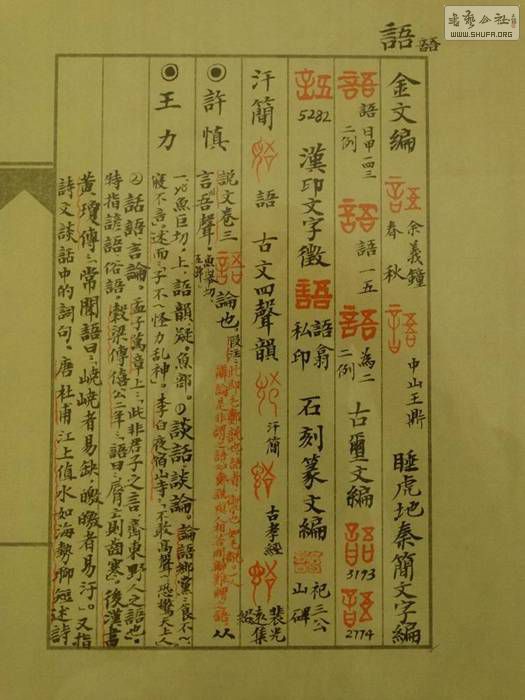 書藝公社
WWW.SHUFA.ORG
語 語
金文編 余義鐘 春秋 中山王鼎 睡虎地秦簡文字編
語 語 日甲一四三 二例 語 語一五 語 為二 二例 古璽文編 3193 2774
5282 漢印文字徵 語 語翁私印 石刻篆文編 祀三公山碑
汗簡 語 古文四聲韻 汗簡 古孝經 裴光遠集綴
許慎 説文卷三 語 論也
言吾聲。魚舉切
王力 一、魚巨切。上,語韻疑。魚部。㈠談話,談論。論語鄉黨:食不~,
寢不言。述而:子不~怪力亂神。李白夜宿山寺:不敢高聲~,恐驚天上人
㈡話語言論。孟子萬章上:此非君子之言,齊東野人之語也。
特指諺語俗語。穀梁傳僖公二年:語曰:脣亡則齒寒。後漢書
黃瓊傳:常聞語曰:嶢嶢者易缺,皦皦者易汙。又指
詩文談話中的詞句。唐杜甫江上值水如海勢聊短述詩